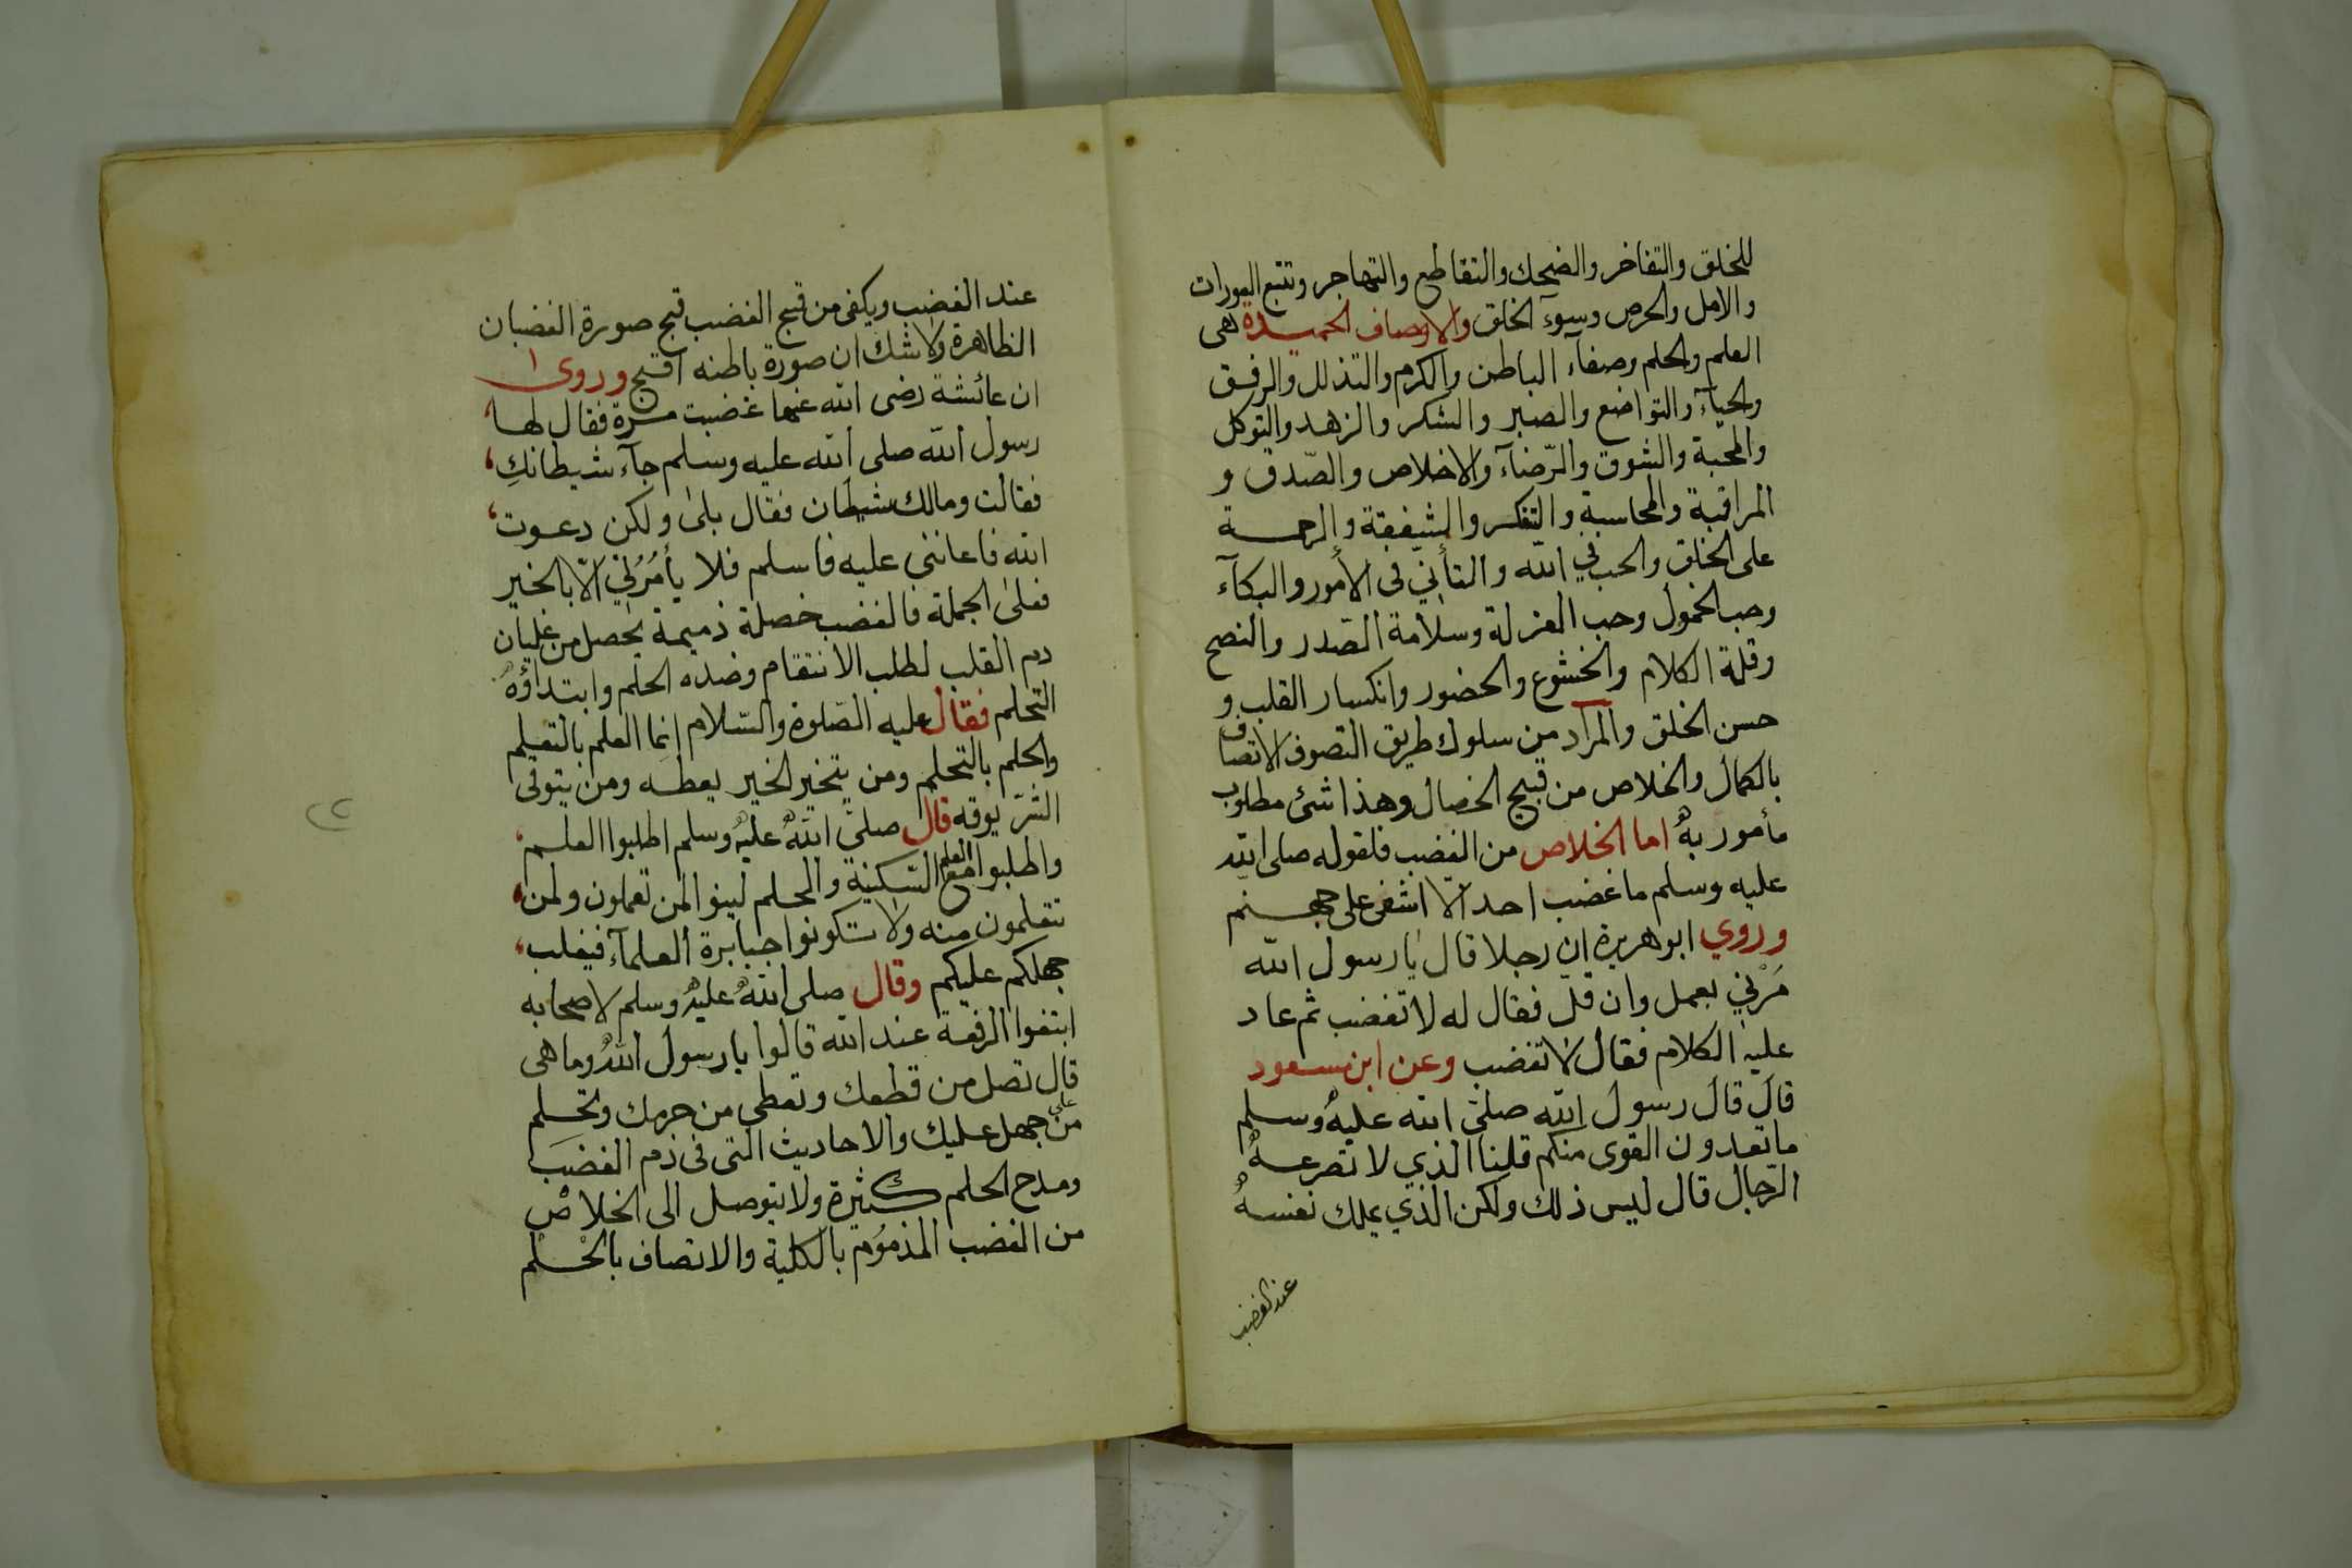 للخلق والتفاخر والضحك والتقاطع والتهاجر وتتبع العورات
والامل والحرص وسوء الخلق والاوصاف الحميدة هى
العلم والحلم وصفآء الباطن والكرم والتذلل والرفق
والحيآء والتواضع والصبر والشكر والزهد والتوكل
والمحبة والشوق والرّضآء والاخلاص والصّدق و
المراقبة والمحاسبة والتفكر والشفقة والرحمة
على الخلق والحب في الله والتأنّي فى الأمور والبكآء
وحب الخمول وحب العزلة وسلامة الصّدر والنصح
وقلة الكلام والخشوع والحضور وانكسار القلب و
حسن الخلق والمراد من سلوك طريق التصوف الاتصاف
بالكمال والخلاص من قبيح الخصال وهذا شئ مطلوب
مأمور به اما الخلاص من الغضب فلقوله صلى الله
عليه وسلم ما غضب احد الّا اشفى على جهنم
وروي ابو هريرة ان رجلا قال يا رسول الله
مُرْني بعمل وان قلّ فقال له لا تغضب ثم عاد
عليه الكلام فقال لا تغضب وعن ابن مسعود
قال قال رسول الله صلى الله عليه وسلم
ما تعدون القوى منكم قلنا الذي لا تصرعه
الرّجال قال ليس ذلك ولكن الذي يملك نفسه
عند الغضب
عند الغضب ويكفى من قبح الغضب قبح صورة الغضبان
الظاهرة ولا شك ان صورة باطنه اقبح وروى
ان عائشة رضى الله عنها غضبت مرة فقال لها
رسول الله صلى الله عليه وسلم جآء شيطانكِ
فقالت ومالك شيطان فقال بلى ولكن دعوت
الله فاعاننى عليه فاسلم فلا يأمُرُني الّا بالخير
فعلى الجملة فالغضب خصلة ذميمة يحصل من غليان
دم القلب لطلب الانتقام وضده الحلم وابتداؤه
التحلم فقال عليه الصّلوة والسّلام إنما العلم بالتعلم
والحلم بالتحلم ومن يتخير الخير يعطه ومن يتوقى
الشرّ يوقه قال صلى الله عليه وسلم اطلبوا العلم
واطلبوا مع العلم السّكينة والحلم لينوا لمن تعلمون ولمن
تتعلمون منه ولا تكونوا جبابرة العلمآء فيغلب
جهلكم عليكم وقال صلى الله عليه وسلم لاصحابه
ابتغوا الرفعة عند الله قالوا يا رسول الله وما هى
قال تصل من قطعك وتعطي من حرمك وتحلم
على من جهل عليك والاحاديث التى فى ذم الغضب
ومدح الحلم كثيرة ولا يتوصل الى الخلاص
من الغضب المذموم بالكلية والاتصاف بالحلم